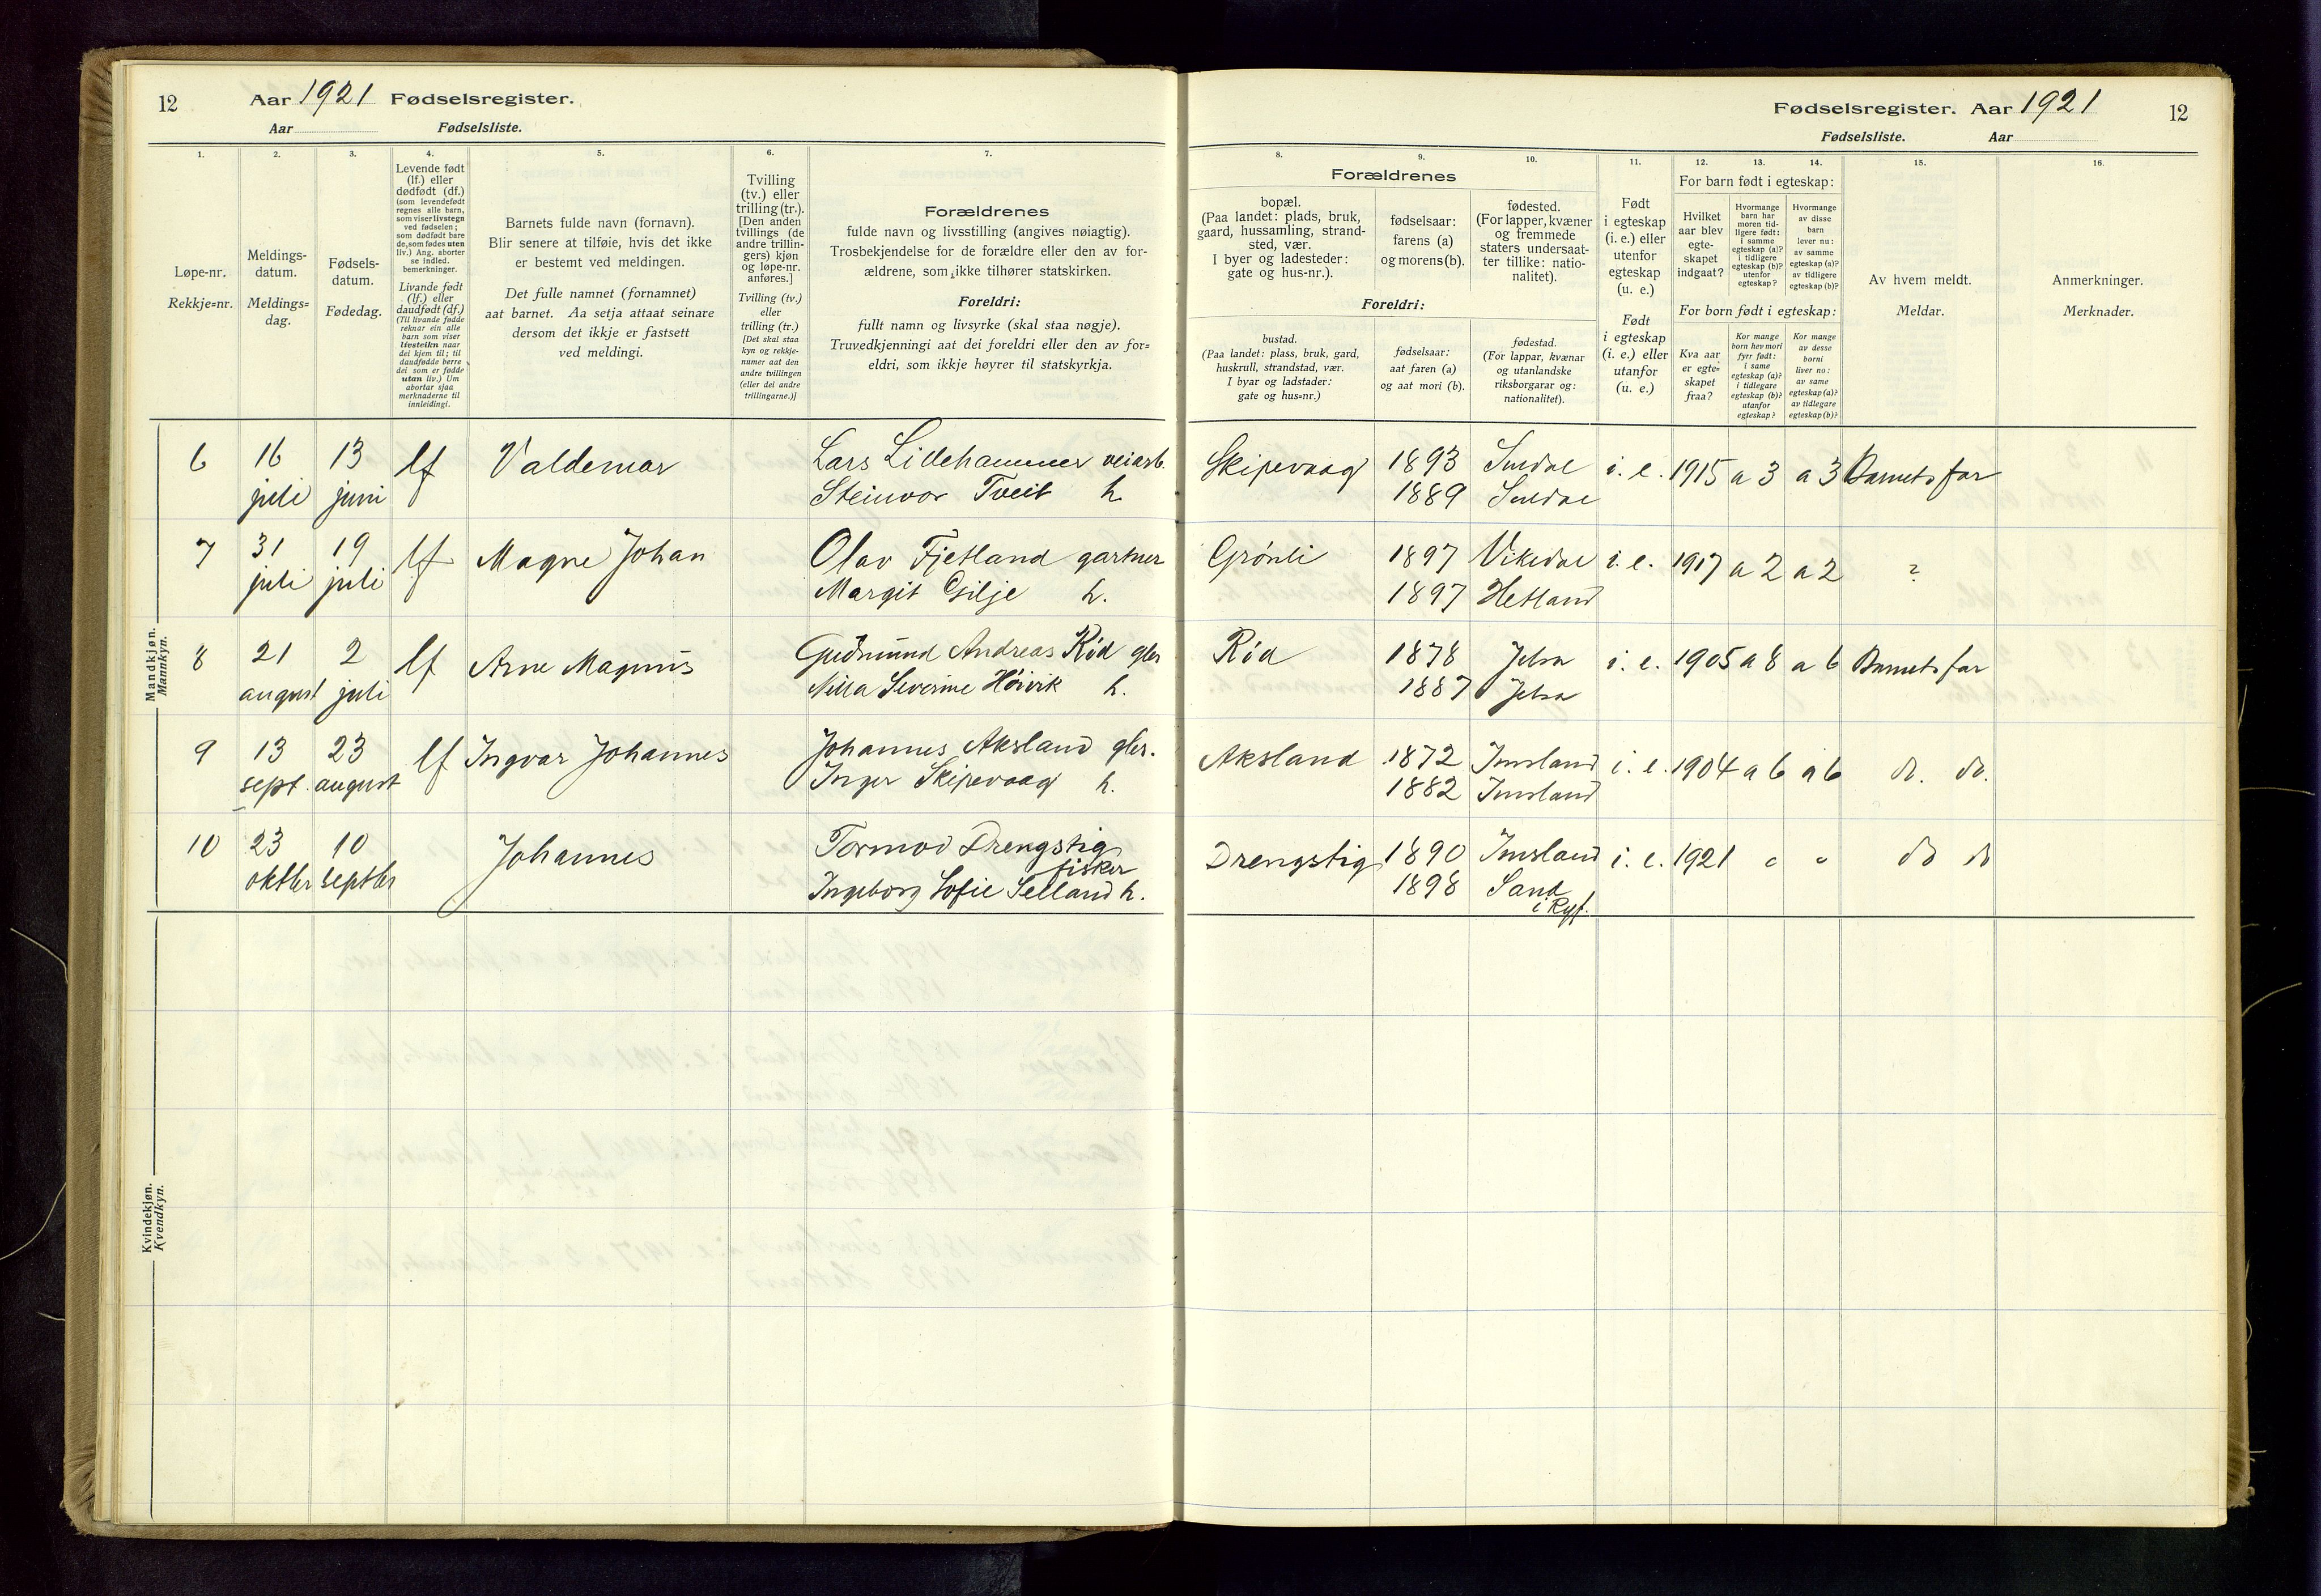 12
Aar 1921 Fødselsregister.
Aar Fødselsliste.
1.
Løpe-nr.
Rekkje=nr.
2.
Meldings-
datum.
Meldings=
dag.
3.
Fødsels-
datum.
Fødedag.
4.
Levende født
(lf.) eller
dødfødt (df.)
(som levendefødt
regnes alle barn,
som viser livstegn
ved fødselen;
som dødfødt bare
de, som fødes uten
liv.) Ang. aborter
se indled.
bemerkninger.
Livande født
(lf.) eller
daudfødt (df.)
(Til livande fødde
reknar ein alle
barn som viser
livsteikn naar
dei kjem til; til
daudfødde berre
dei som er fødde
utan liv.) Um
abortar sjaa
merknaderne til
innleidingi.
5.
Barnets fulde navn (fornavn).
Blir senere at tilføie, hvis det ikke
er bestemt ved meldingen.
Det fulle namnet (fornamnet)
aat barnet. Aa setja attaat seinare
dersom det ikkje er fastsett
ved meldingi.
6.
Tvilling
(tv.) eller
trilling (tr.).
[Den anden
tvillings (de
andre trillin-
gers) kjøn
og løpe-nr.
anføres.]
Tvilling (tv.)
eller
trilling (tr.)
[Det skal staa
kyn og rekkje-
numer aat den
andre tvillingen
(eller dei andre
trillingarne.)]
7.
Forældrenes
fulde navn og livsstilling (angives nøiagtig).
Trosbekjendelse for de forældre eller den av for-
ældrene, som ikke tilhører statskirken.
Foreldri:
fullt namn og livsyrke (skal staa nøgje).
Truvedkjenningi aat dei foreldri eller den av for=
eldri, som ikkje høyrer til statskyrkja.
Mandkjøn.
Mannkyn.
6 16 13 lf Valdemar Lars Lillehammer veiarb.
juli juni Steinvor Tveit h.
7 31 19 lf Magne Johan Olav Fjetland gartner
juli juli Margit Gilje h.
8 21 2 lf Arne Magnus Gudmund Andreas Rød gbr
august juli Nilla Severine Høivik h.
9 13 23 lf Ingvar Johannes Johannes Aksland gbr.
sept. august Inger Skipevaag h.
10 23 10 Johannes Tormod Drengstig
fisker
oktbr septbr Ingeborg Sofie Selland h.
Kvindekjøn.
Kvendkyn.
Fødselsregister. Aar 1921
12
Fødselsliste. Aar
8.
Forældrenes
bopæl.
(Paa landet: plads, bruk,
gaard, hussamling, strand-
sted, vær.
I byer og ladesteder:
gate og hus-nr.).
9.
fødselsaar:
farens (a)
og morens (b).
10.
fødested.
(For lapper, kvæner
og fremmede
staters undersaat-
ter tillike: natio-
nalitet).
Foreldri:
bustad.
(Paa landet: plass, bruk, gard,
huskrull, strandstad, vær.
I byar og ladstader:
gate og hus=nr.)
fødselsaar:
aat faren (a)
og aat mori (b).
fødestad.
(For lappar, kvænar
og utanlandske
riksborgarar og:
nationalitet).
11.
Født
i egteskap
(i. e.) eller
utenfor
egteskap
(u. e.)
Født
i egteskap
(i. e.) eller
utanfor
(u. e.)
12. 13. 14.
For barn født i egteskap:
Hvilket
aar blev
egte-
skapet
indgaat?
Hvormange
barn har
moren tid-
ligere født:
i samme
egteskap (a)?
i tidligere
egteskap (b)?
utenfor
egteskap?
Hvormange
av disse
barn
lever nu:
av samme
egteskap (a)?
av tidligere
egteskap (b)?
For born født i egteskap:
Kva aar
er egte=
skapet
fraa?
Kor mange
born hev mori
fyrr født:
i same
egteskap (a)?
i tidlegare
egteskap (b)?
utanfor
egteskap?
Kor mange
av desse
borni
liver no:
av same
egteskap (a)?
av tidlegare
egteskap (b)?
15.
Av hvem meldt.
Meldar.
16.
Anmerkninger.
Merknader.
Skipevaag 1893 Suldal i. e. 1915 a 3 a 3 Barnets far
1889 Suldal
Grønli 1897 Vikedal i. e. 1917 a 2 a 2 ?
1897 Hetland
Rød 1878 Jelsa i. e. 1905 a 8 a 6 Barnets far
1887 Jelsa
Aksland 1872 Imsland i. e. 1904 a 6 a 6 do. do.
1882 Imsland
Drengstig 1890 Imsland i. e. 1921 do do
1898 Sand
i Ryf.